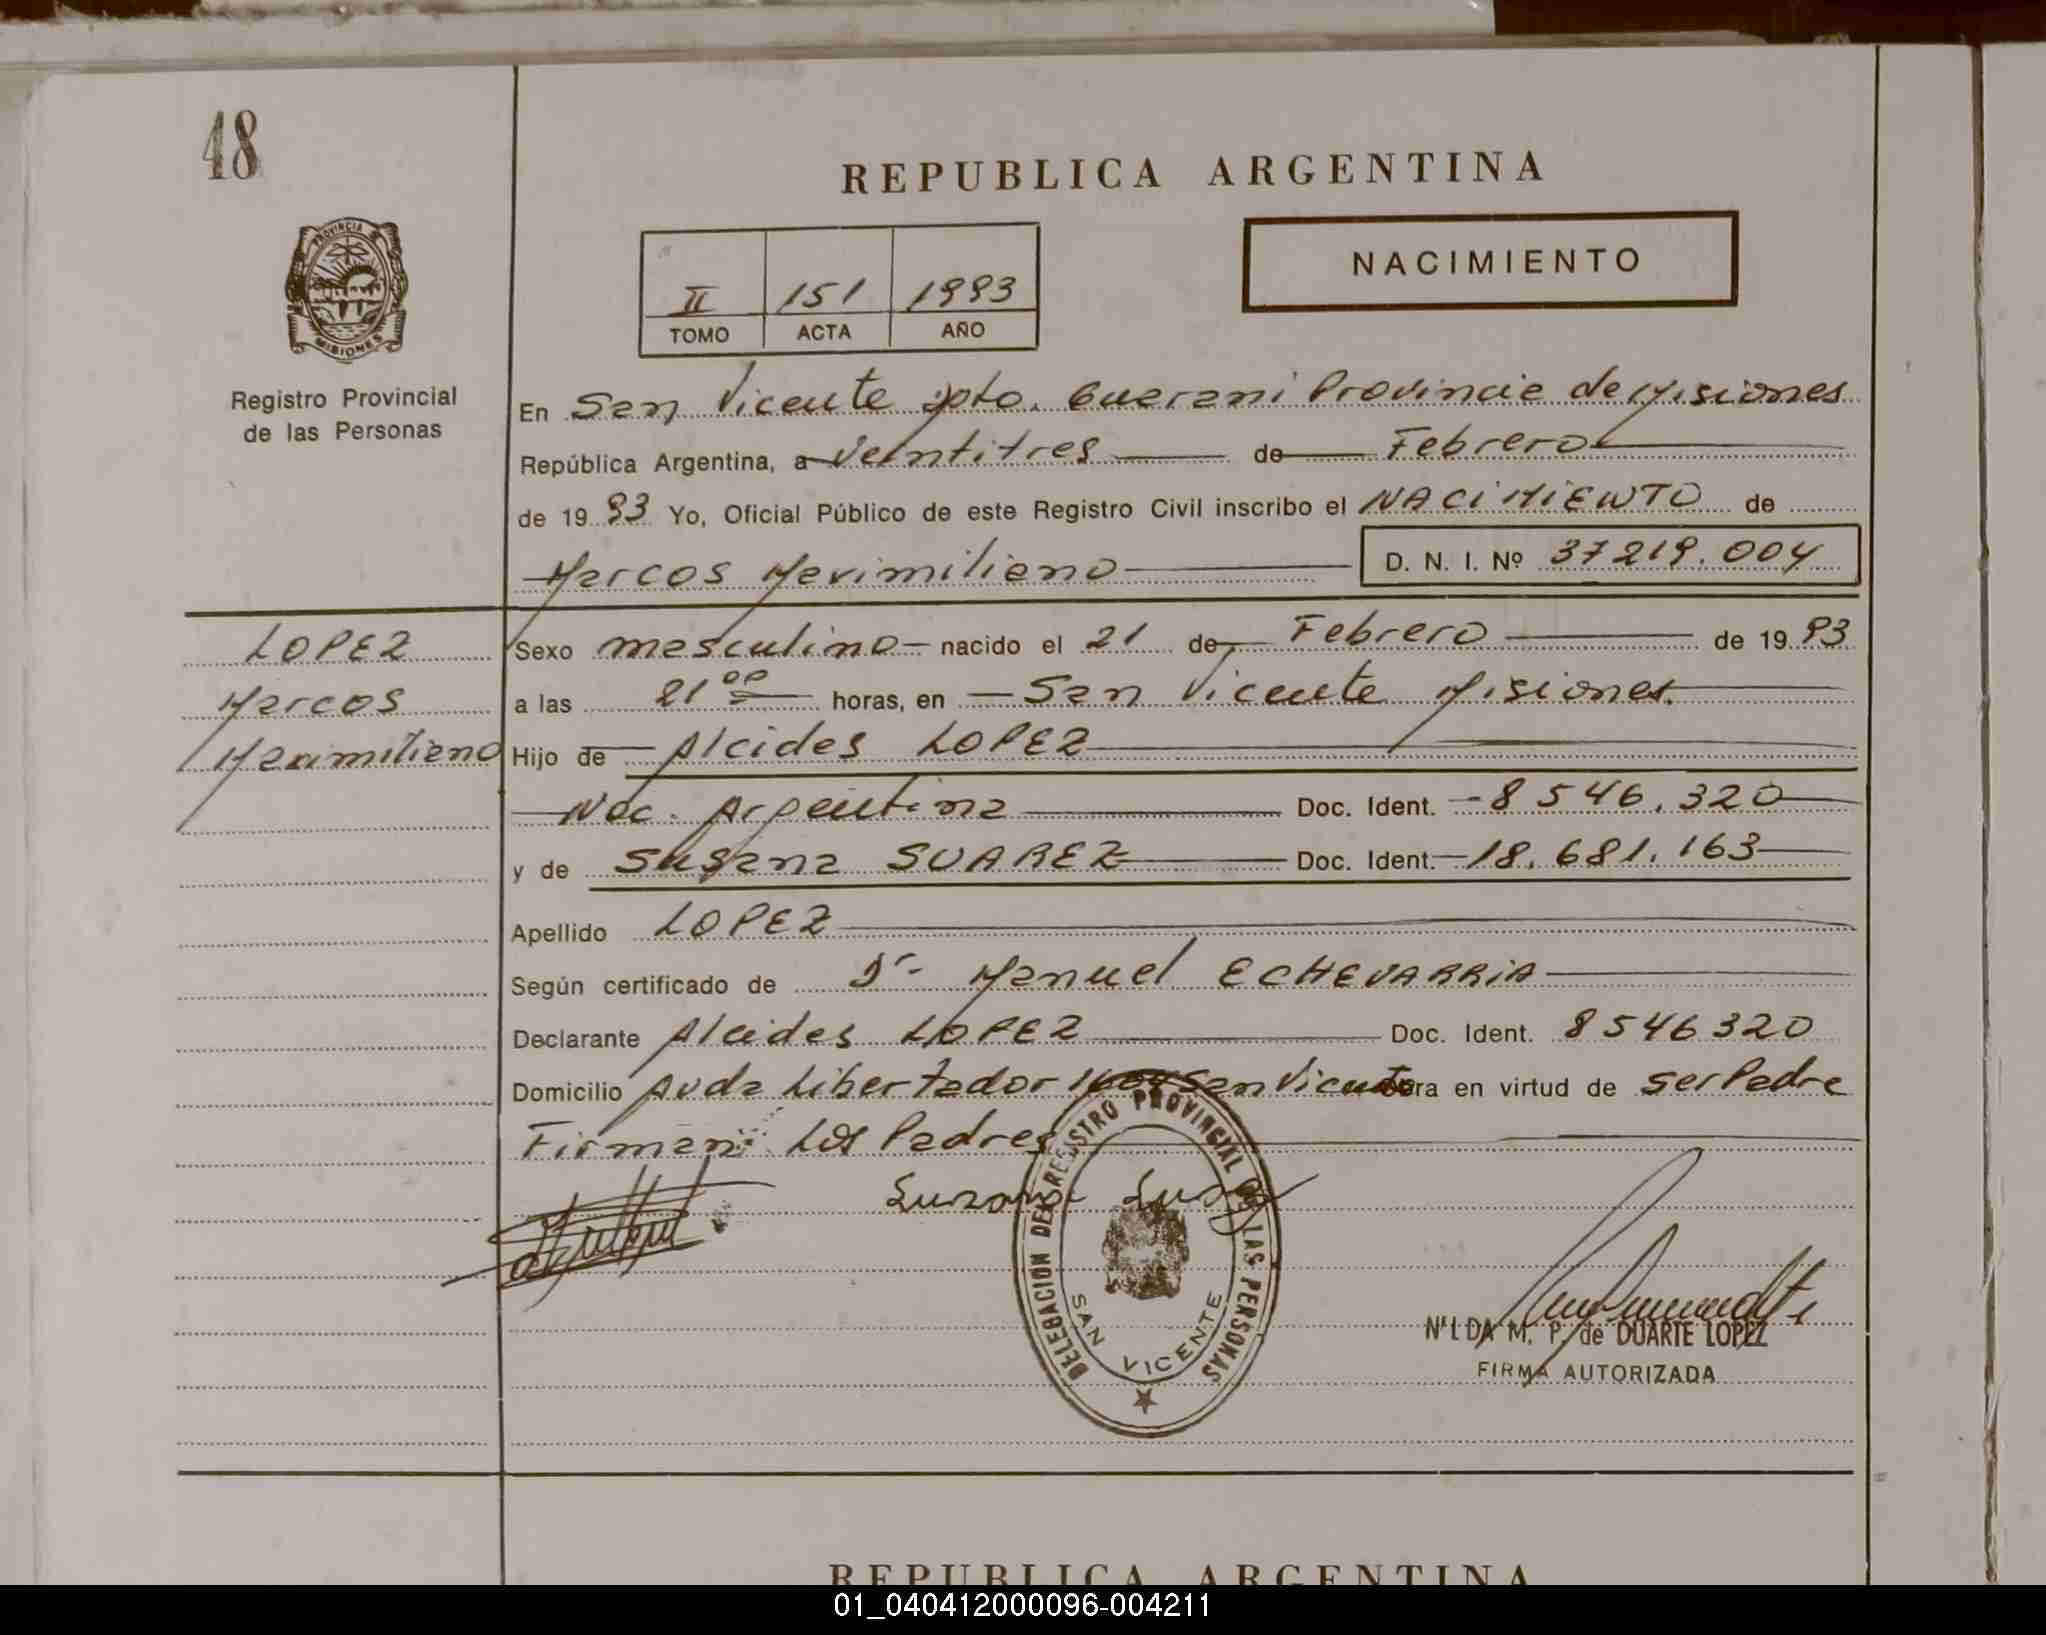 48
REPUBLICA ARGENTINA
PROVINCIA D
MISIONES
Registro Provincial
de las Personas
NACIMIENTO
II 151 1993
TOMO ACTA AÑO
En San Vicente Dpto. Guarani Provincia de Misiones
República Argentina, a Veintitres de Febrero
de 19 93 Yo, Oficial Público de este Registro Civil inscribo el NACIMIENTO de
Marcos Maximiliano D. N. I. Nº 37219.004
LOPEZ
Marcos
Maximiliano
Sexo masculino nacido el 21 de Febrero de 19 93
a las 21 00 horas, en San Vicente Misiones.
Hijo de Alcides LOPEZ
Nac. Argentina Doc. Ident. 8546.320
y de Susana SUAREZ Doc. Ident. 18.681.163
Apellido LOPEZ
Según certificado de Dr. Manuel ECHEVARRIA
Declarante Alcides LOPEZ Doc. Ident. 8546320
Domicilio Avda Libertador San Vicente obra en virtud de ser Padre
Firman: Los Padres
DELEGACION DEL REGISTRO PROVINCIAL DE LAS PERSONAS
SAN VICENTE
NILDA M. P. de DUARTE LOPEZ
FIRMA AUTORIZADA
REPUBLICA ARGENTINA
01_040412000096-004211